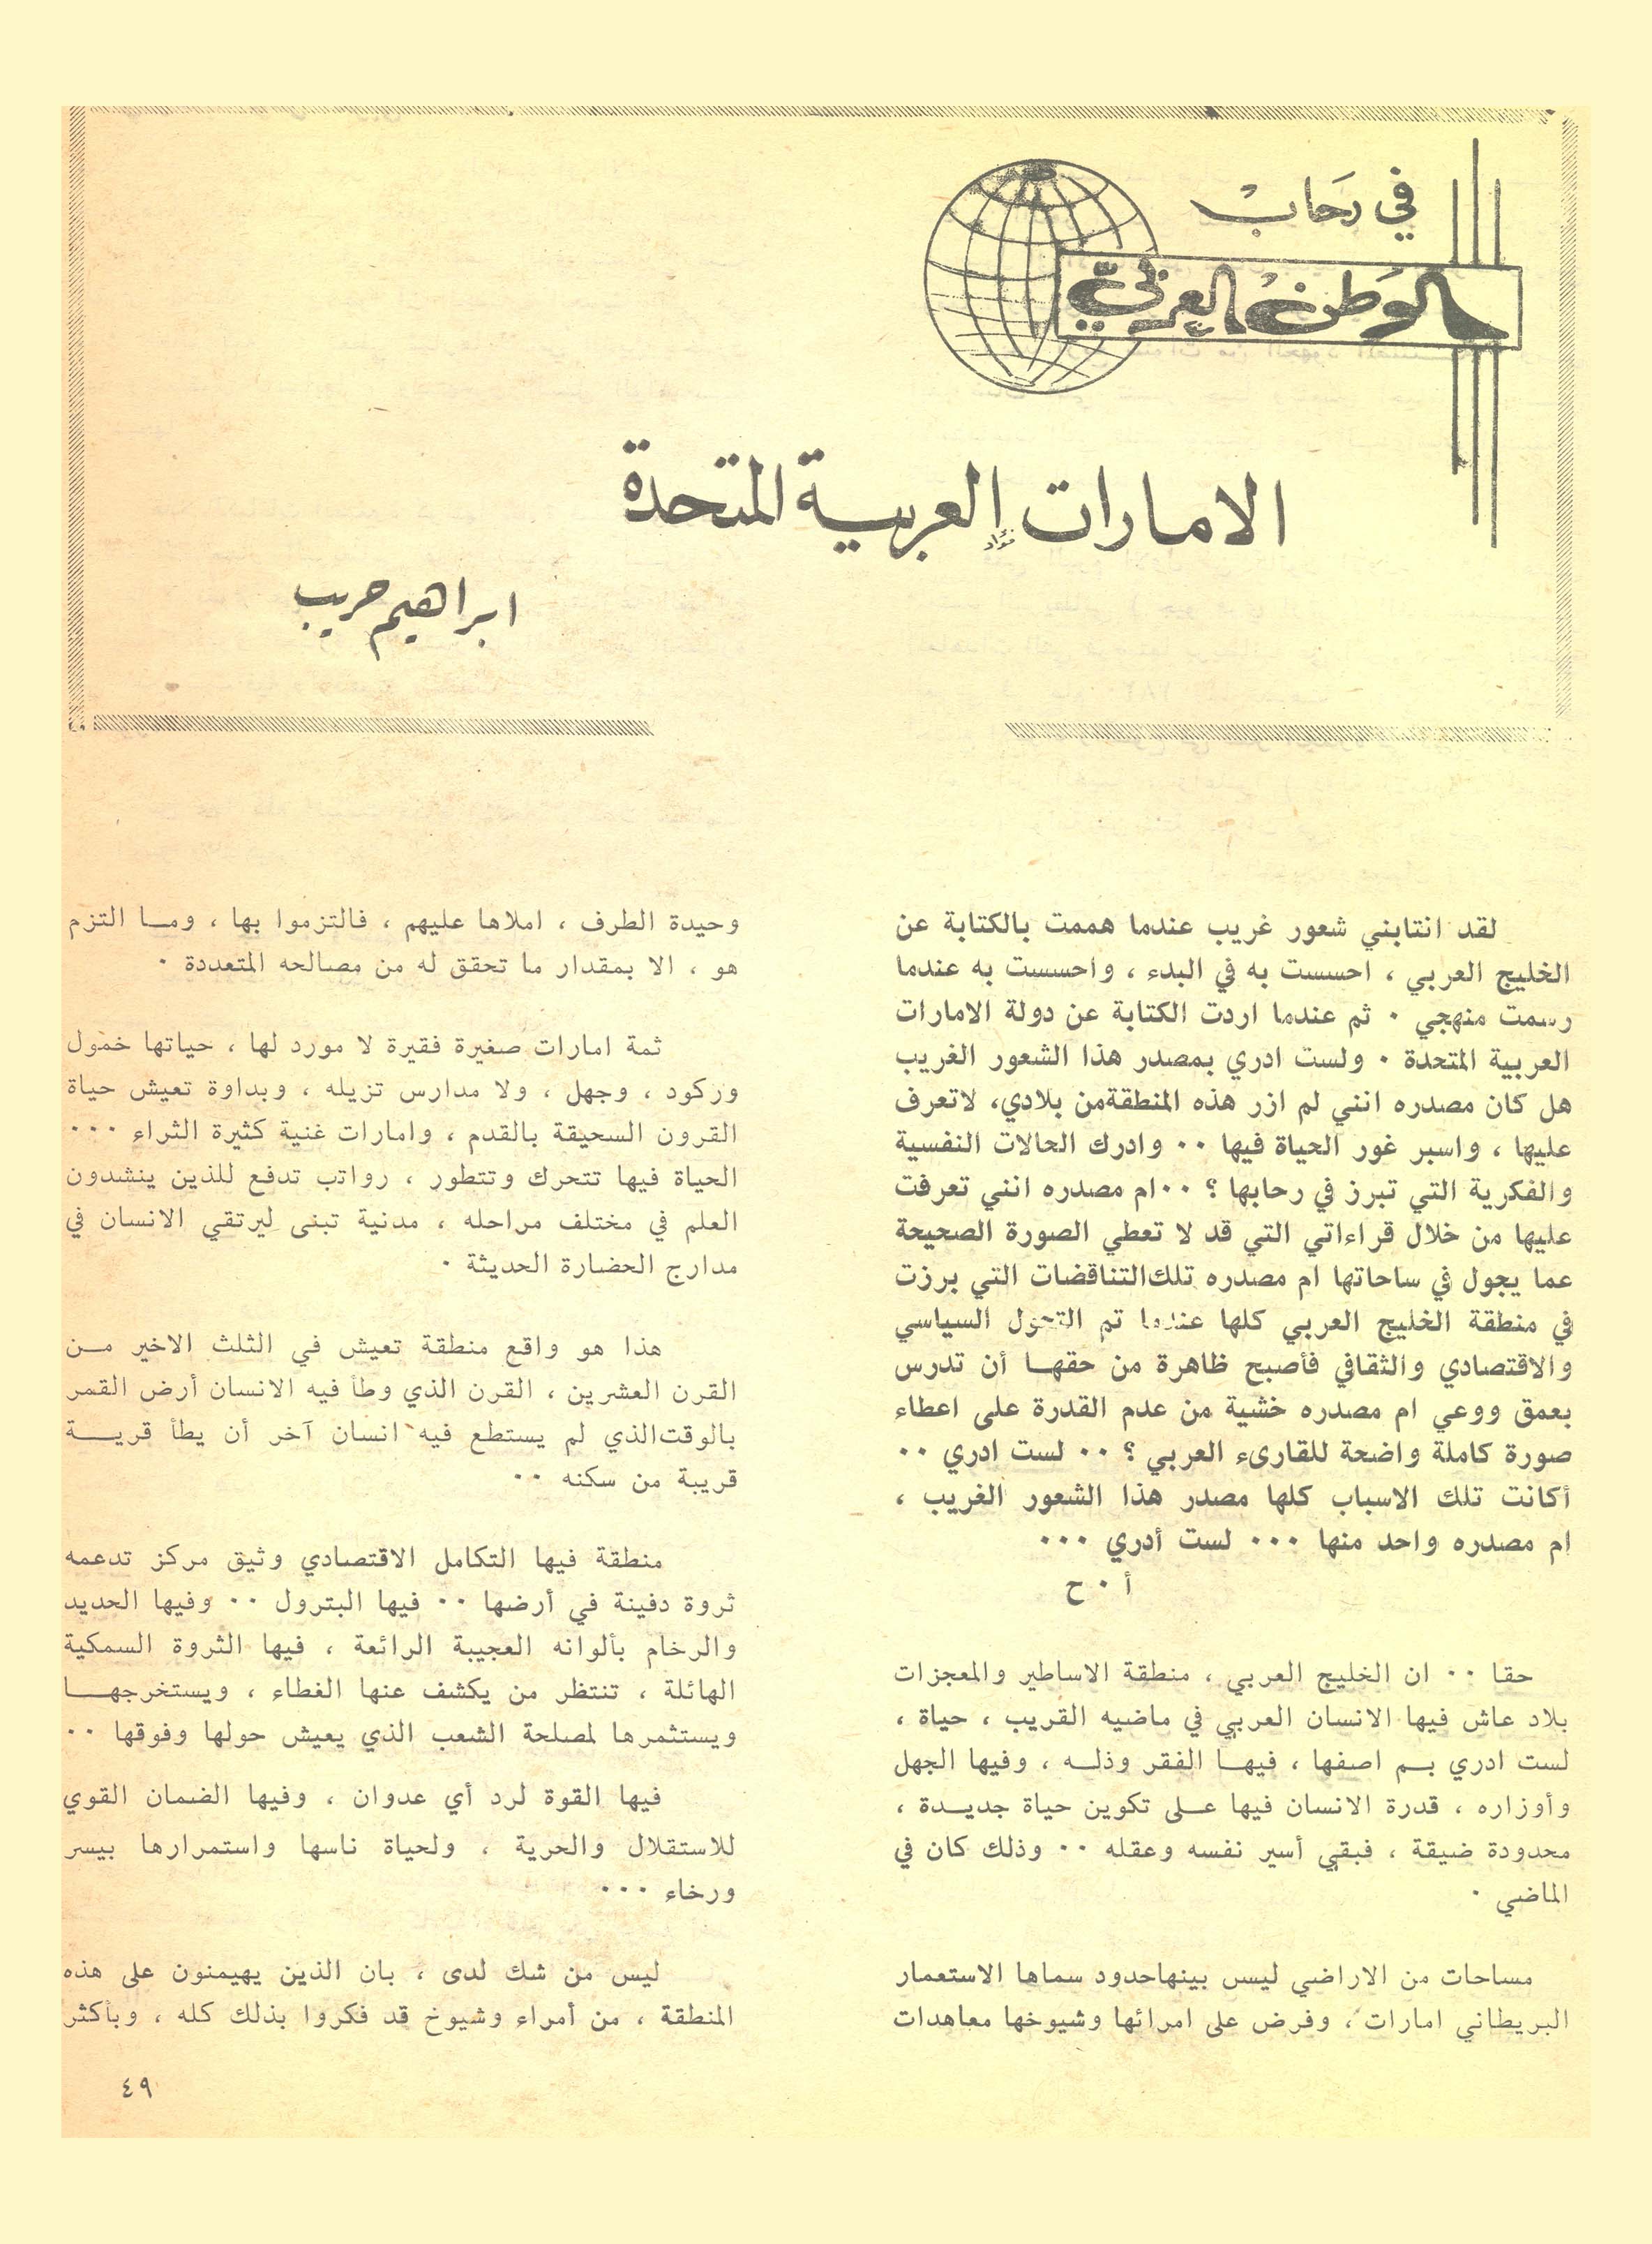 في رحاب
الوطن العربي
الامارات العربية المتحدة
ابراهيم حريب
لقد انتابني شعور غريب عندما هممت بالكتابة عن
الخليج العربي ، احسست به في البدء ، واحسست به عندما
رسمت منهجي ٠ ثم عندما اردت الكتابة عن دولة الامارات
العربية المتحدة ٠ ولست ادري بمصدر هذا الشعور الغريب
هل كان مصدره انني لم ازر هذه المنطقةمن بلادي، لاتعرف
عليها ، واسبر غور الحياة فيها ٠٠ وادرك الحالات النفسية
والفكرية التي تبرز في رحابها ؟ ٠٠ام مصدره انني تعرفت
عليها من خلال قراءاتي التي قد لا تعطي الصورة الصحيحة
عما يجول في ساحاتها ام مصدره تلك التناقضات التي برزت
في منطقة الخليج العربي كلها عندما تم التحول السياسي
والاقتصادي والثقافي فأصبح ظاهرة من حقهـا أن تدرس
بعمق ووعي ام مصدره خشية من عدم القدرة على اعطاء
صورة كاملة واضحة للقارىء العربي ؟ ٠٠ لست ادري ٠٠
أكانت تلك الاسباب كلها مصدر هذا الشعور الغريب ،
ام مصدره واحد منها ٠٠٠ لست أدري ٠٠٠
أ ٠ ح
حقا ٠٠ ان الخليج العربي ، منطقة الاساطير والمعجزات
بلاد عاش فيها الانسان العربي في ماضيه القريب ، حياة ،
لست ادري بـم اصفها ، فيهـا الفقر وذلـه ، وفيها الجهل
وأوزاره ، قدرة الانسان فيها عـلى تكوين حياة جديـدة ،
محدودة ضيقة ، فبقي أسير نفسه وعقله ٠٠ وذلك كان في
الماضي ٠
مساحات من الاراضي ليس بينهاحدود سماها الاستعمار
البريطاني امارات ، وفرض على امرائها وشيوخها معاهدات
وحيدة الطرف ، املاها عليهم ، فالتزموا بها ، ومـا التزم
هو ، الا بمقدار ما تحقق له من مصالحه المتعددة ٠
ثمة امارات صغيرة فقيرة لا مورد لها ، حياتها خمول
وركود ، وجهل ، ولا مدارس تزيله ، وبداوة تعيش حياة
القرون السحيقة بالقدم ، وامارات غنية كثيرة الثراء ٠٠٠
الحياة فيها تتحرك وتتطور ، رواتب تدفع للذين ينشدون
العلم في مختلف مراحله ، مدنية تبنى ليرتقي الانسان في
مدارج الحضارة الحديثة ٠
هذا هو واقع منطقة تعيش في الثلث الاخير مـن
القرن العشرين ، القرن الذي وطأ فيه الانسان أرض القمر
بالوقت الذي لم يستطع فيه انسان آخر أن يطأ قريـــة
قريبة من سكنه ٠٠
منطقة فيها التكامل الاقتصادي وثيق مركز تدعمه
ثروة دفينة في أرضها ٠٠ فيها البترول ٠٠ وفيها الحديد
والرخام بألوانه العجيبة الرائعة ، فيها الثروة السمكية
الهائلة ، تنتظر من يكشف عنها الغطاء ، ويستخرجهـــا
ويستثمرها لمصلحة الشعب الذي يعيش حولها وفوقها ٠٠
فيها القوة لرد أي عدوان ، وفيها الضمان القوي
للاستقلال والحرية ، ولحياة ناسها واستمرارها بيسر
ورخاء ٠٠٠
ليس من شك لدى ، بان الذين يهيمنون على هذه
المنطقة ، من أمراء وشيوخ قد فكروا بذلك كله ، وبأكثر
٤٩